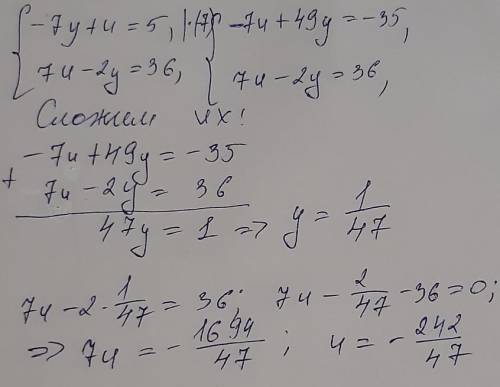 { -7y + u = 5, |·(-7) { -7u + 49y = -35,
7u - 2y = 36, 7u - 2y = 36,
Сложим их!
-7u + 49y = -35
+ 7u - 2y = 36
47y = 1 => y = 1/47
7u - 2 · 1/47 = 36; 7u - 2/47 - 36 = 0;
=> 7u = - 1694/47 ; u = - 242/47